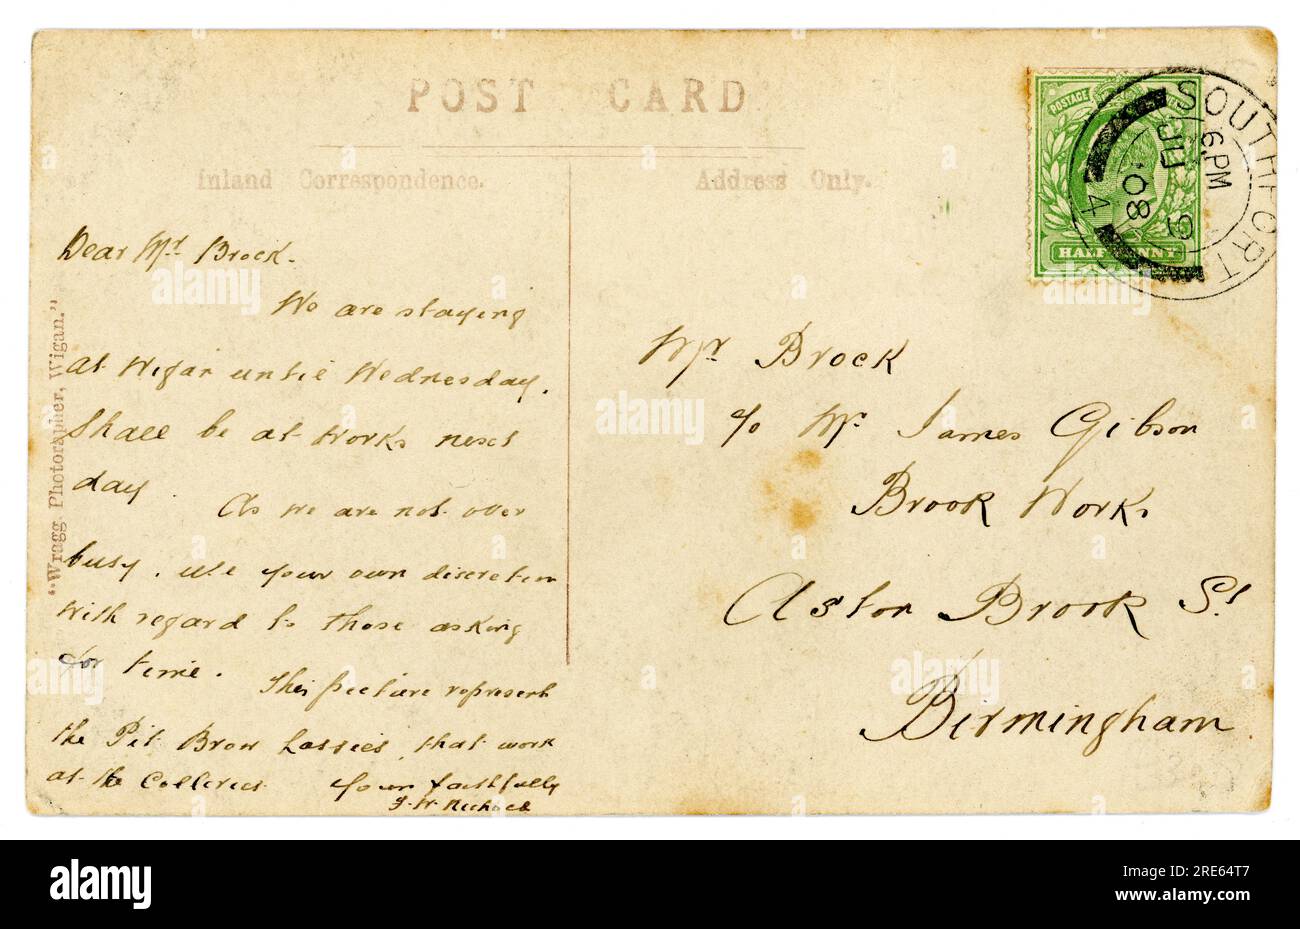 POST CARD
Inland Correspondence.
Address Only.
"Wragg Photorapher, Wigan."
Dear Mr. Brock.
We are staying
at Wigan until Wednesday.
Shall be at Works next
day. As we are not over
busy. use your own discretion
with regard to those asking
for time. This picture represents
the Pit Brow Lassies, that work
at the Colleries. Yours faithfully
Mr Brock
c/o Mr James Gibson
Brook Works
Aston Brook St
Birmingham
POSTAGE
HALF PENNY
SOUTHPORT
6.PM
JU 9
'08
4
alamy
alamy
Image ID: 2RE64T7
www.alamy.com